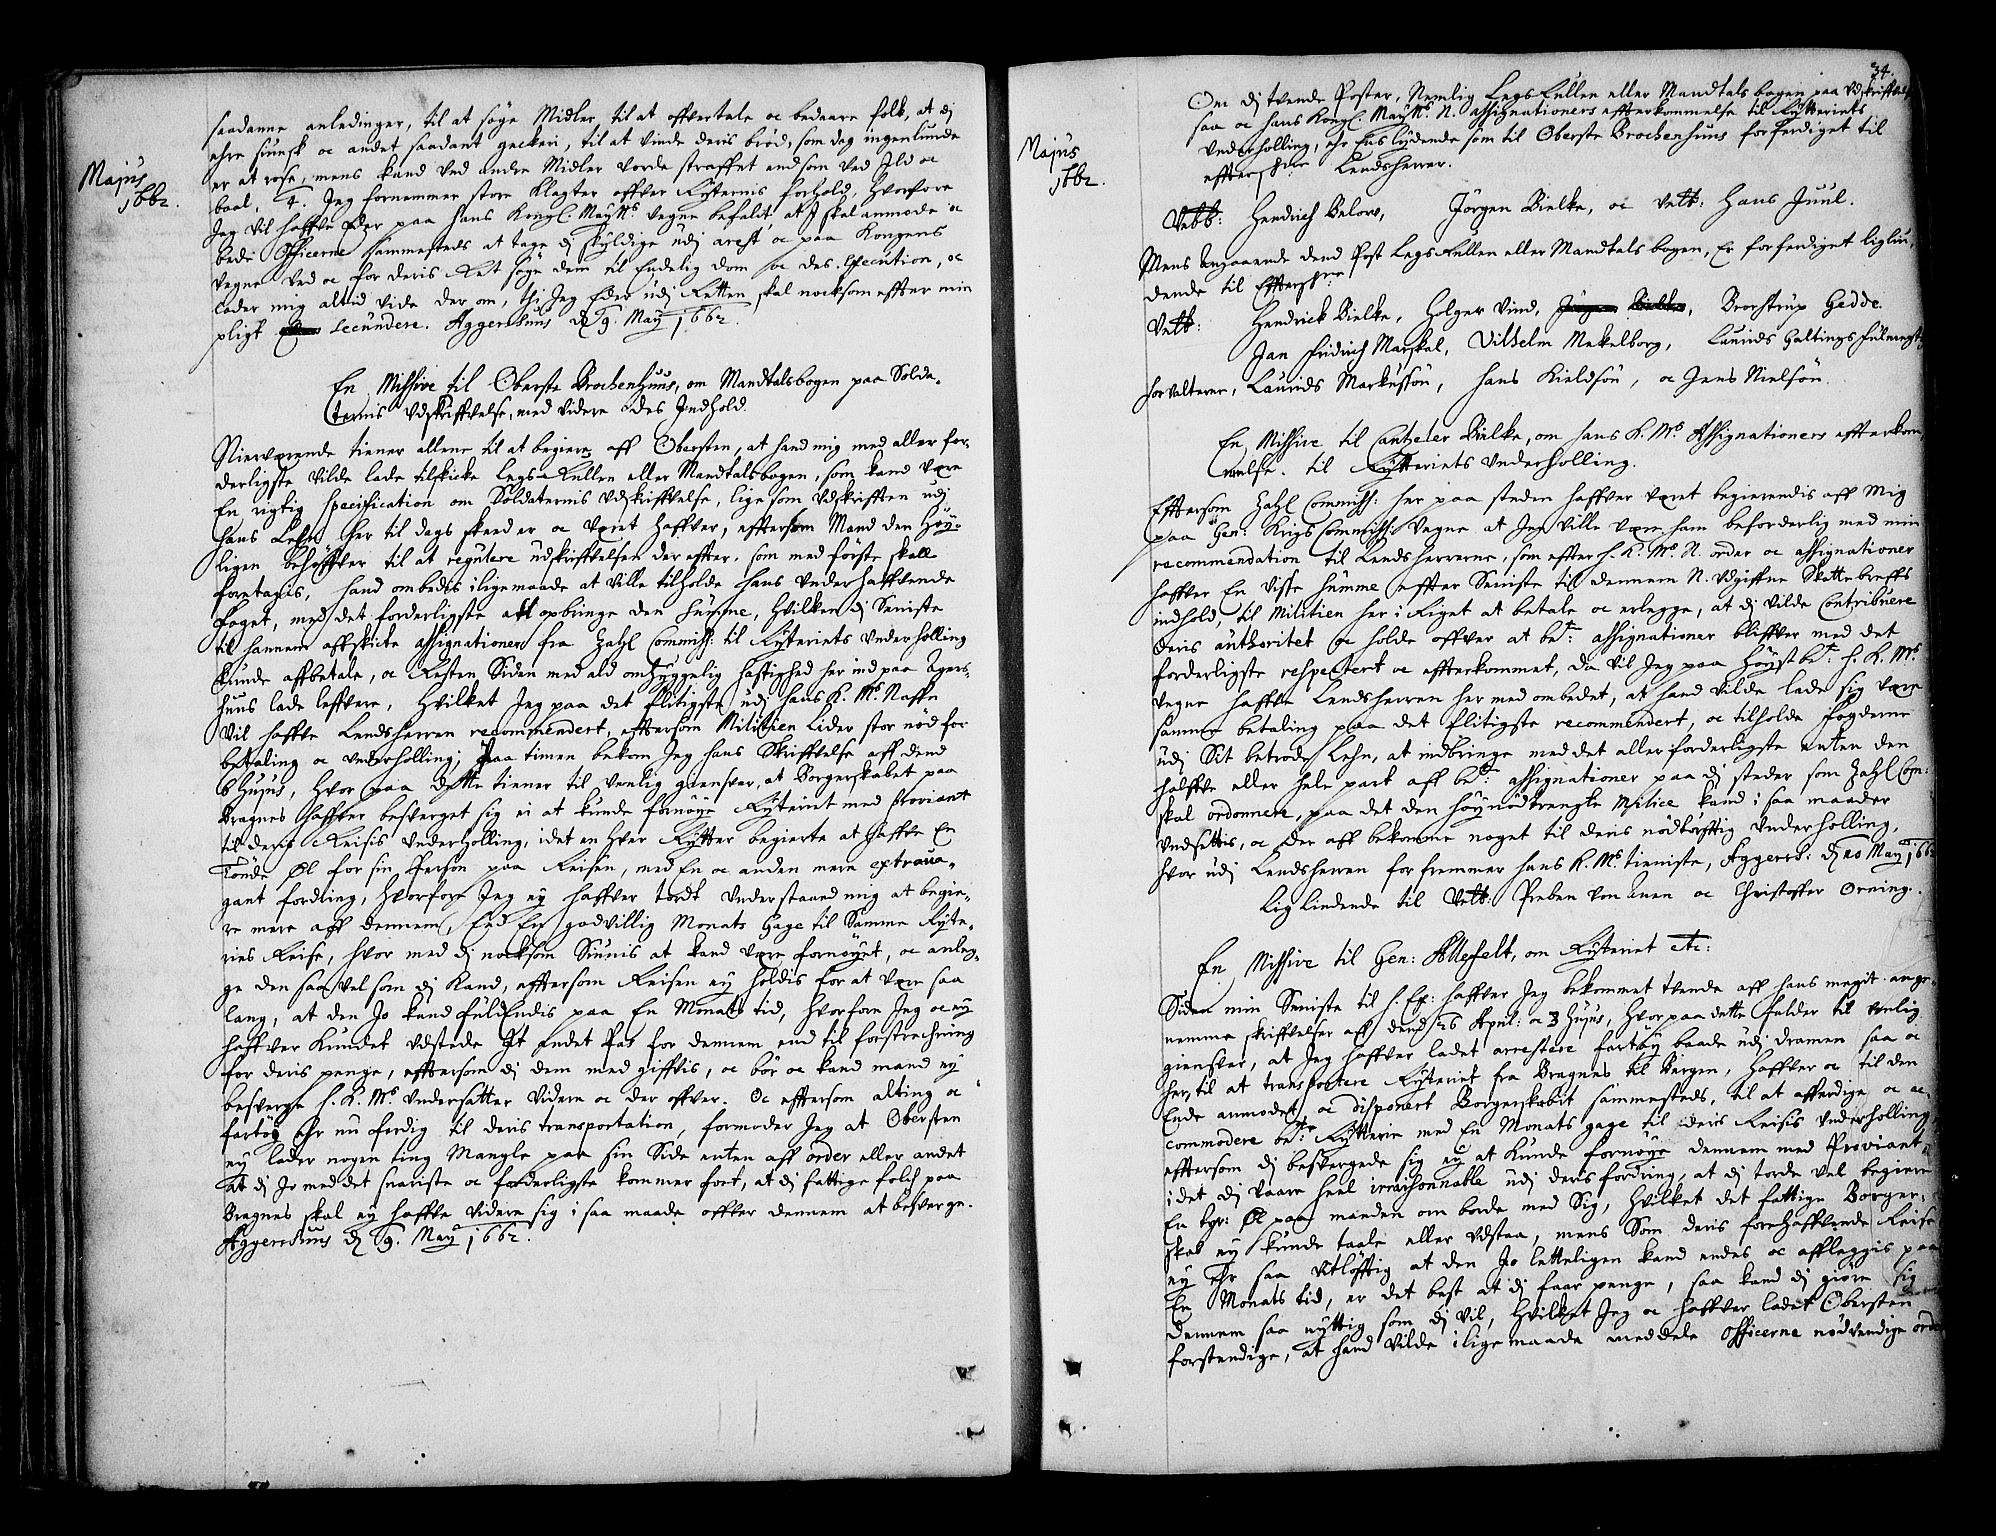 Majus
1662.
saadanne anledinger, til at søge Midler, til at offvertale oc bedaare folk, at dj
ehre siunsk oc andet saadant geckeri, til at vinde deris brød, som dog ingenlunde
er at rose, mens kand ved andre Midler vorde straffet end som ved Ild oc
baal. 4. Jeg fornemmer store klagter offver Rytternis forhold, hvorfore
Jeg vil haffve Eder paa hans Kongl: Maytts vegne befalt, at I skal anmode oc
bede Officerne sammesteds at tage dj skyldige udj arest, oc paa Kongens
vegne ved oc for deris Ret søge dem til Endelig dom oc des Execution, oc
lader mig altid vide der om, thi Jeg Eder udj Retten skal nocksom effter min
pligt secundere. Aggershuus d 9. May 1662.
En Missive til Oberste Brochenhuus, om Mandtalsbogen paa Solda-
ternis Udskriffvelse, med videre des Indhold.
Nerværende tiener allene til at begiere aff Obersten, at hand mig med aller for-
derligste vilde lade tilskicke Legs-Rullen eller Mandtalsbogen, som kand være
En rigtig specification om Soldaternis Udskriffvelse, lige som Udskrifften udj
hans Lehn her til dags skeed er oc været haffver, effter som Mand den høy-
ligen behøffver til at regulere udskriffvelsen der effter, som med første skall
foretagis, hand ombedis i ligemaade at ville tilholde hans underhaffvende
Foget, med det forderligste at opbringe den Summe, hvilken dj Seniste
til hannem affskickte assignationer fra Zahl Commiss: til Ryteriets underholling
kunde affbetale, oc Resten Siden med ald omhyggelig hastighed her ind paa Agers-
huus lade leffvere, hvilket Jeg paa det flitigste udj hans K. Ms. Naffn
vil haffve Lendsherren recommendert, effter som Militzien Lider stor nød for
betaling oc underholling; Paa timen bekom Jeg hans Skriffvelse aff dend
6 hujus, hvor paa dette tiener til venlig giensvar, at Borgerskabet paa
Bragnes haffver besverget sig ei at kunde fornøye Ryteriet med Proviant
til deris Reisis Underholling, idet en hver Rytter begierte at haffve En
Tønde Øl for sin Person paa Reisen, med En oc anden mere extrava-
gant fordring, hvorfore Jeg ey haffver tordt understaaed mig at begie-
re mere aff dennem, End En godvillig Monats Gage til Samme Ryte-
ries Reise, hvor med dj nocksom Siunis at kand være fornøyet, oc anleg-
ge den saa vel som dj kand, effter som Reisen ey holdis for at være saa
lang, at den Jo kand fuldendis paa En Monats tid, hvorfore Jeg oc ey
haffver kundet udstede Et andet Pas for dennem end til forstrechning
for deris penge, effter som dj dem med giffvis, oc bør oc kand mand ey
besverge h. K. Ms. undersatter videre oc der offver. Oc effter som alting oc
fartøy Ehr nu ferdig til deris transportation, formoder Jeg at Obersten
ey lader nogen ting Mangle paa sin Side enten aff order eller andet
at dj Jo med det snariste oc forderligste kommer fort, at dj fattige folch paa
Bragnes skal ey haffve videre sig i saa maade offver dennem at besverge.
Aggershuus d 9. May 1662.
34.
Majus
1662.
Om dj tvende Poster, Nemlig Legs Rullen eller Mandtals bogen paa Udskriffvelse
saa oc hans Kongl: Maytts N. assignationers effterkommelse til Rytteriets
underholling, ehr Enslydende som til Oberste Brochenhuus forferdiget til
effterschr: Lendsherrer.
Velb: Hendrich Below, Jørgen Bielke, oc velb: Hans Juul.
Mens angaaende dend Post Legs Rullen eller Mandtals bogen, Er forferdiget liglu-
dende til Effterschr:
Velb: Hendrick Bielke, Holger Vind, Jørgen Bielke, Brochtrup Gedde.
Jan Fridrich Marskal, Vilhelm Mekelborg, Laurids Galtings fulmegtig
forvalterer, Laurids Markussøn, Hans Kieldsøn, oc Jens Nielsøn.
En Missive til Cantzeler Bielke, om hans K. Ms. Assignationers effterkom-
melse til Rytteriets underholling.
Effter som Zahl Commiss: her paa steden haffver været begierendis aff mig
paa Gen: Krigs Commiss: vegne at Jeg ville være ham beforderlig med min
recommendation til Lendsherrerne, som effter h. K. Ms. N. order oc assignationer
haffver En visse Summe effter Seniste til dennem N. udgiffne Skattebreffs
indhold, til Militien her i Riget at betale oc erlegge, at dj vilde Contribuere
deris authoritet oc holde offver at bete: assignationer bliffver med det
forderligste respectert oc effterkommet, da vil Jeg paa høystbete: h. K. Ms.
vegne haffve Lendsherren her med ombedet, at hand vilde lade sig være
samme betaling paa det flitigste recommendert, oc tilholde Fogderne
udj Sit betrode Lehn, at indbringe med det aller forderligste enten den
halffve eller hele part aff bete: assignationer paa dj steder som Zahl Com:
skal ordonnere, paa det den høynødtrengte Milice kand i saa maader
undsettis, oc der aff bekomme noget til deris nødtørfftig underholling,
hvor udj Lendsherren forfremmer hans K. Ms. tieniste, Aggersh: d 10 May 1662
Liglindende til Velb: Preben von Anen oc Christoffer Orning.
En Missive til Gen: Allefelt, om Ryteriet etc:
Siden min Seniste til h. Ex: haffver Jeg bekommet tvende aff hans meget ange-
nemme skriffvelser aff dend 26 April: oc 3 hujus, hvor paa dette falder til venlig
giensvar, at Jeg haffver ladet arrestere fartøy baade udj dramen saa oc
her, til at transportere Ryteriet fra Bragnes til Bergen, haffver oc til den
Ende anmodet, oc disponert Borgerskabit sammesteds, til at afferdige oc ac-
commodere bete: Rytterie med En Monats gage til deris Reisis underholling,
effter som dj besvergede sig ey at kunde fornøye dennem med Proviant
idet dj vaare heel irraisonnable udj deris fordring, at dj torde vel begiere
En tyn: Øl paa manden om borde med Sig, hvilket det fattige Borger-
skab ey kunde taale eller udstaa, mens Som deris forehaffvende Reise
ey Ehr saa vitløfftig at den Jo letteligen kand endes oc affleggis paa
En Monats tid, er det best at dj faar penge, saa kand dj giøre sig
dennem saa nyttig som dj vil, hvilket Jeg oc haffver ladet Obersten
forstendige, at hand vilde i lige maade meddele Officerne nødvendige order